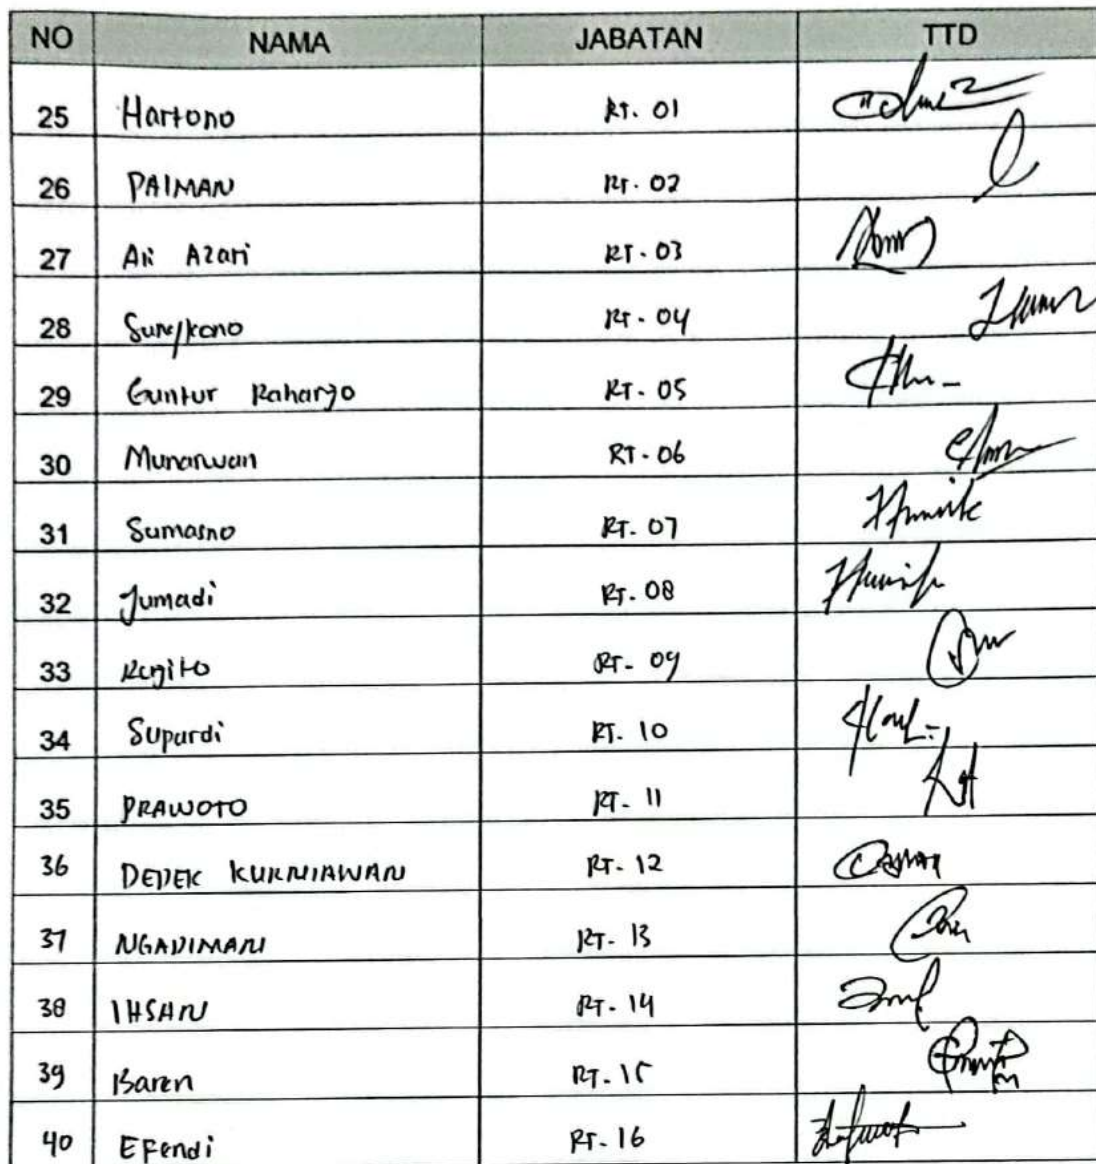 NO NAMA JABATAN TTD
25 Hartono RT. 01
26 PAIMAN RT. 02
27 Ari Azari RT. 03
28 Sungkono RT. 04
29 Guntur Raharjo RT. 05
30 Munarwan RT. 06
31 Sumarno RT. 07
32 Jumadi RT. 08
33 RT. 09
34 Supardi RT. 10
35 PRAWOTO RT. 11
36 DEDEK KURNIAWAN RT. 12
37 NGADIMAN RT. 13
38 IHSAN RT. 14
39 Baren RT. 15
40 Efendi RT. 16